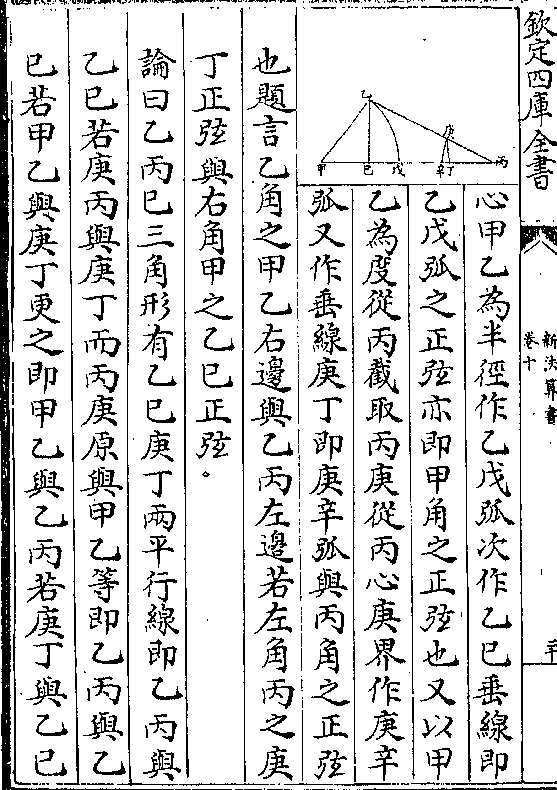 欽定四庫全書
新法算書
卷十
二十
心甲乙為半徑作乙戊弧次作乙巳垂線即
乙戊弧之正弦亦即甲角之正弦也又以甲
乙為度從丙截取丙庚從丙心庚界作庚辛
弧又作垂線庚丁即庚辛弧與丙角之正弦
乙
庚
甲
巳
戊
辛
丁
丙
也題言乙角之甲乙右邊與乙丙左邊若左角丙之庚
丁正弦與右角甲之乙巳正弦。
論曰乙丙巳三角形有乙巳庚丁兩平行線即乙丙與
乙巳若庚丙與庚丁而丙庚原與甲乙等即乙丙與乙
巳若甲乙與庚丁更之即甲乙與乙丙若庚丁與乙巳